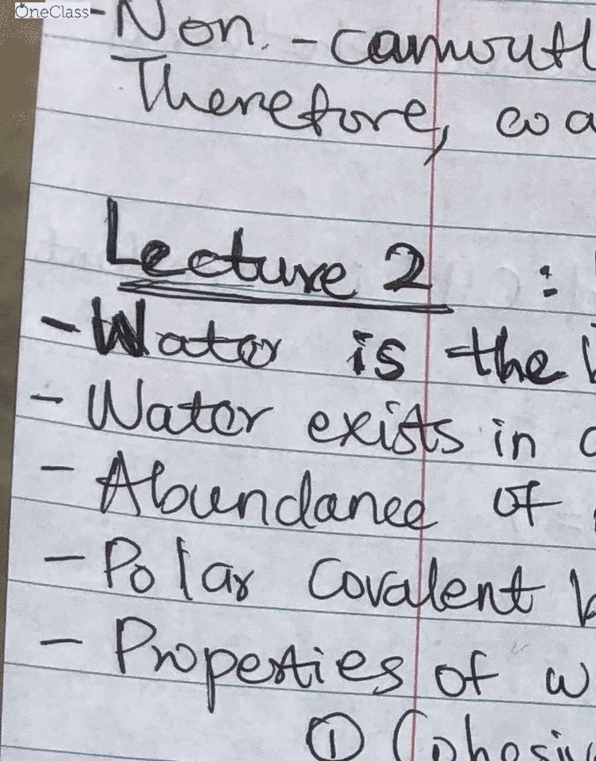 OneClass
- Non. -
Therefore,
Lecture 2 :
- Water is the
- Water exists in
- Abundance of
- Polar Covalent
- Properties of w
① Cohesiv